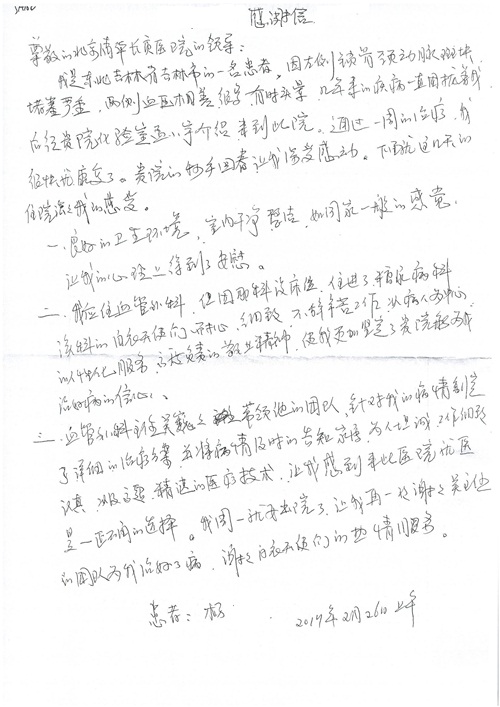 感谢信
尊敬的北京清华长庚医院的领导：
我是东北吉林省吉林市的一名患者，因左侧锁骨颈动脉斑块
堵塞严重，两侧血压相差很多，有时头晕，几年来的疾病一直困扰着我
后经贵院化验室孟小宇介绍来到此院。通过一周的治疗，我
很快就康复了。贵院的妙手回春让我深受感动。下面就这几天的
住院谈谈我的感受。
一、良好的卫生环境，室内干净整洁，如同家一般的感觉，
让我的心理上得到了安慰。
二、我应住血管外科，但因那科没床位，住进了糖尿病科
该科的白衣天使们，耐心，细致，不辞辛苦工作，以病人为中心
的人性化服务，高度负责的敬业精神，使我更加坚定了贵院能为我
治好病的信心。
三、血管外科主任吴巍巍 带领他的团队，针对我的病情制定
了详细的治疗方案，并将病情及时的告知家属，为人坦诚，工作细致
认真，以及高超，精湛的医疗技术，让我感到来此医院就医
是一正确的选择。我周一就要出院了，让我再一次谢谢吴主任
的团队为我治好了病，谢谢白衣天使们的热情服务。
患者：杨
2019年2月26日上午